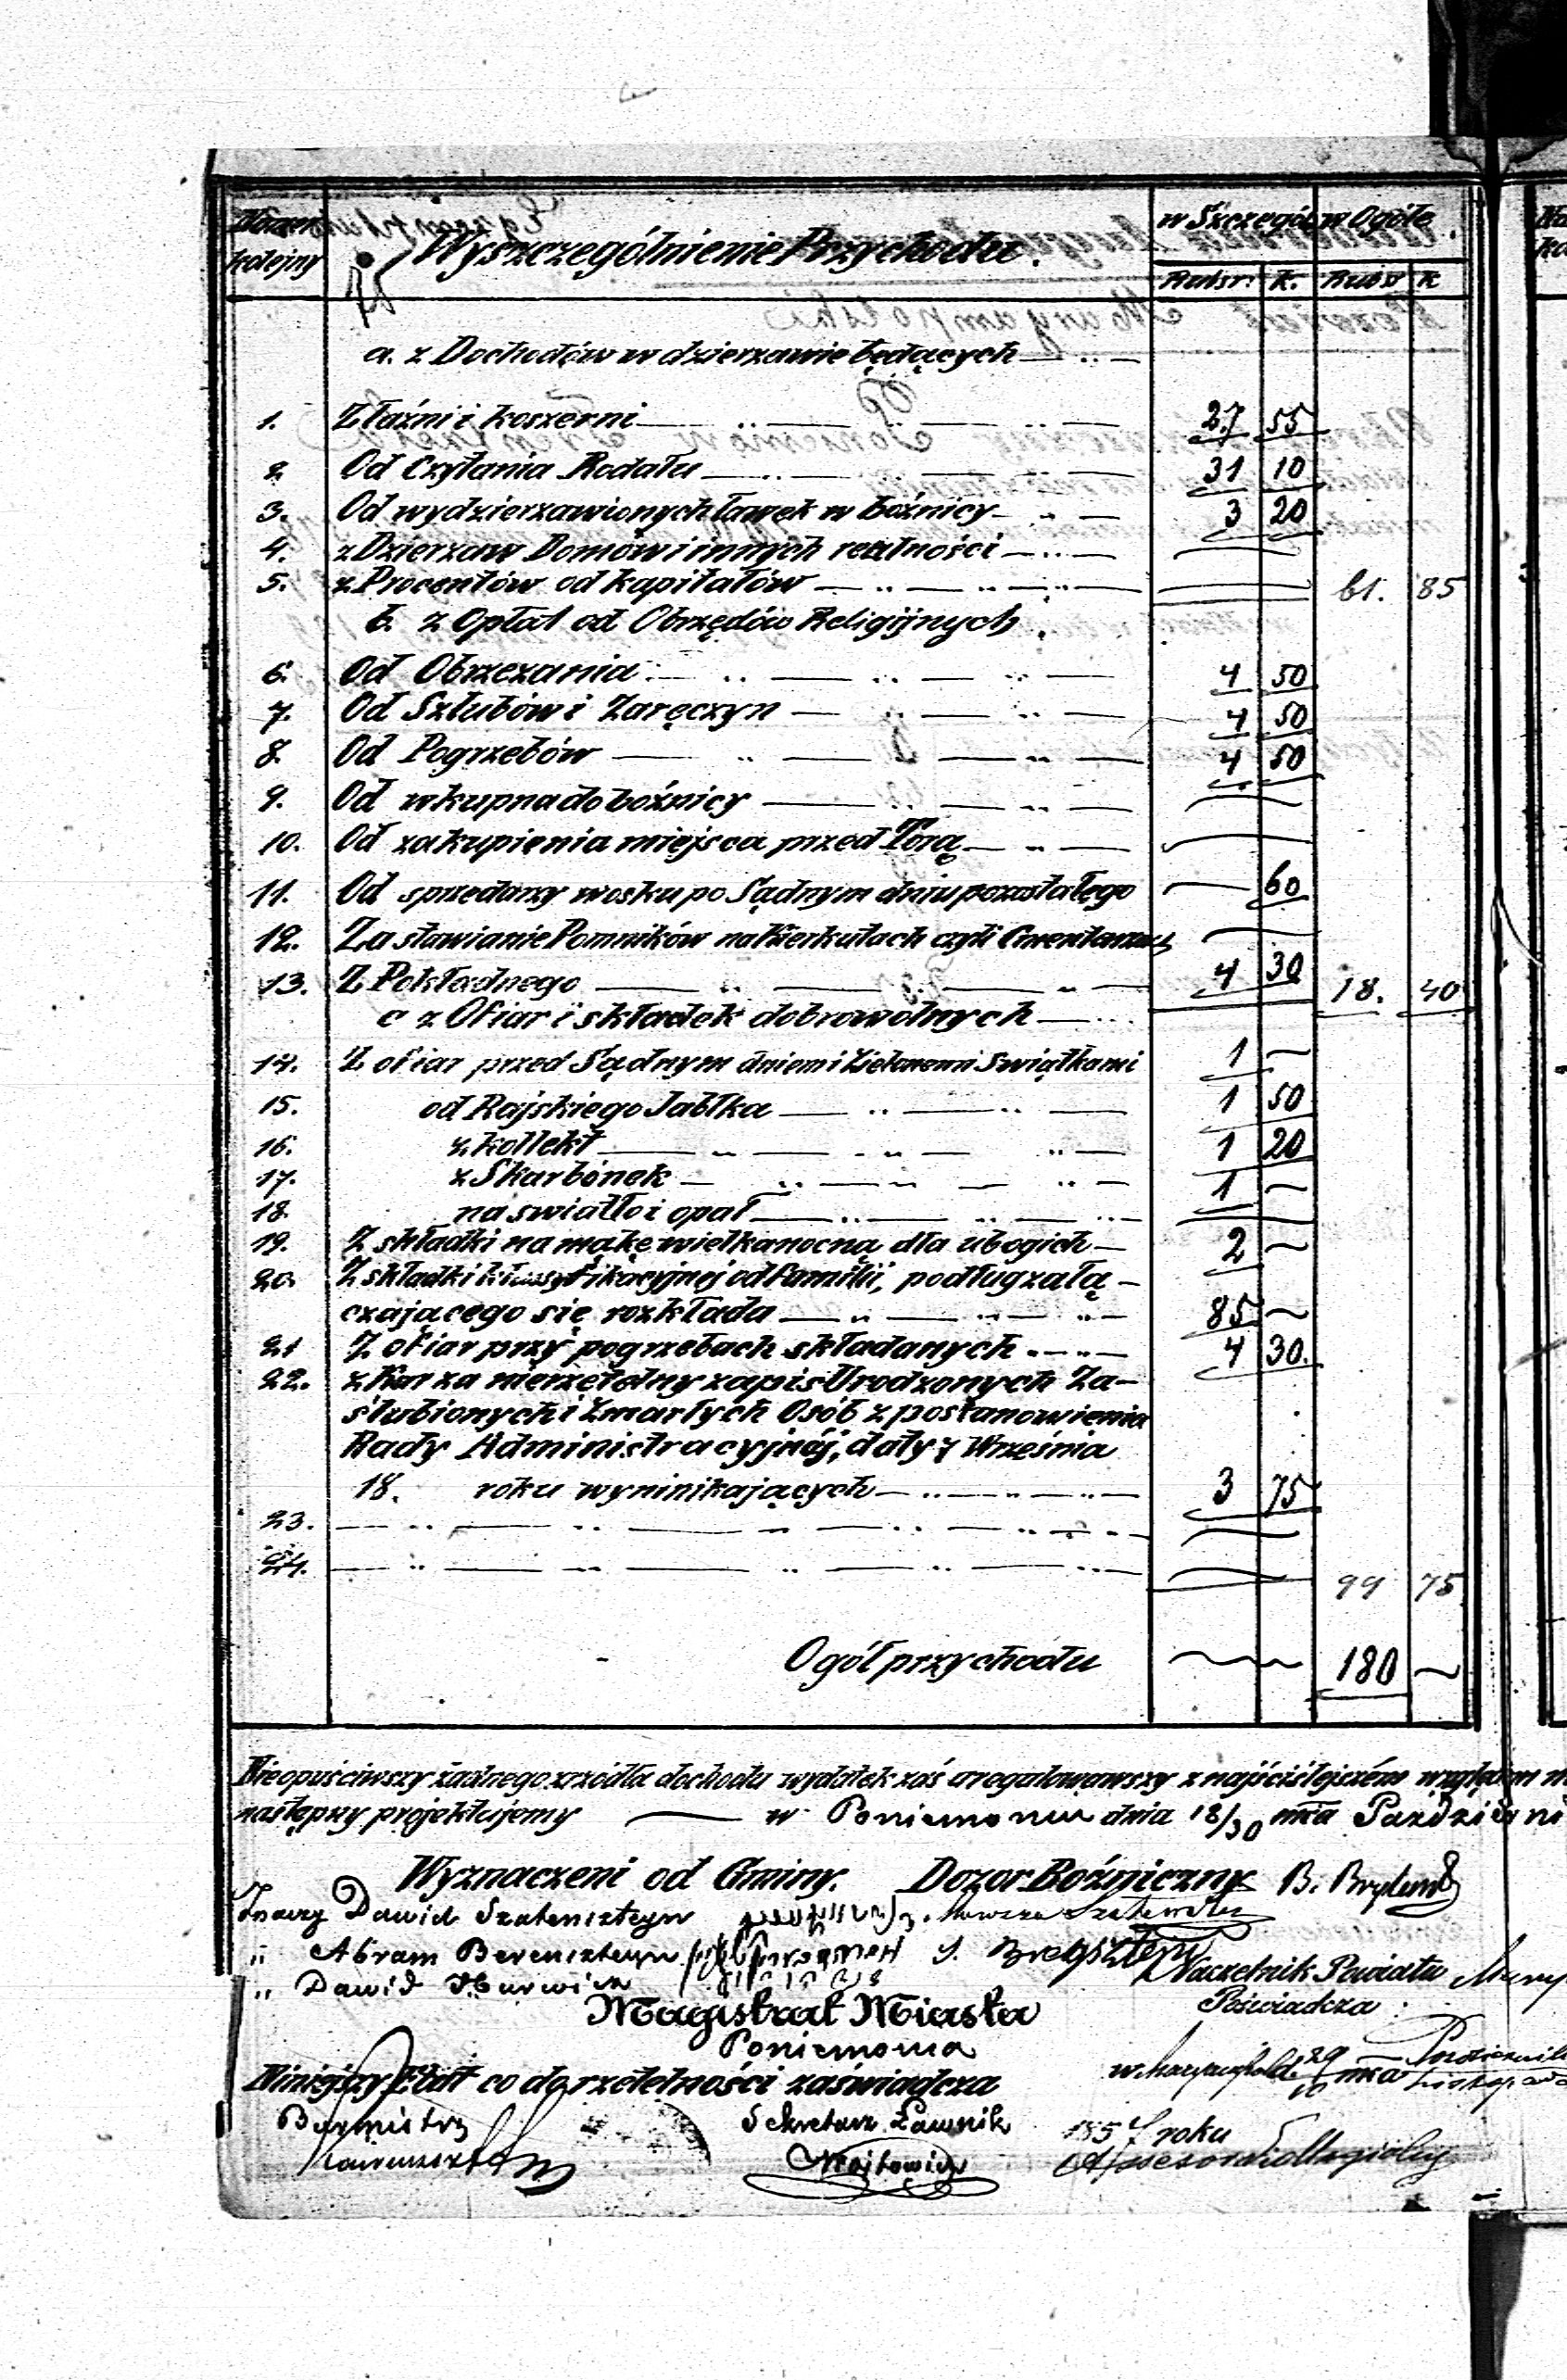 Numer kolejny Wyszczególnienie Przychodu. w Szczegól. w Ogóle
Rubsr. k. Rubsr k
a. z Dochodów w dzierzawie będących
1. Z łaźni i koszerni 27 55
2. Od Czytania Rodału 31 10
3. Od wydzierzawionych ławek w bóżnicy 3 20
4. z Dzierzaw Domów i innych realności
5. z Procentów od kapitałów 61. 85
b. z Opłat od Obrzędów Religijnych
6. Od Obrzezania 4 50
7. Od Szlubów i Zaręczyn 4 50
8. Od Pogrzebów 4 50
9. Od wkupna do bożnicy
10. Od zakupienia miejsca przed Torą
11. Od sprzedarzy wosku po Sądnym dniu pozostałego 60
12. Za stawianie Pomników na Kierkutach czyli Cmentarzach
13. Z Pokładnego 4 30 18. 40
c z Ofiar i składek dobrowolnych
14. Z ofiar przed Sądnym dniem i Zielonemi Swiątkami 1
15. od Rajskiego Jabłka 1 50
16. z kollekt 1 20
17. z Skarbonek 1
18. na swiatło i opał
19. Z składki na mąkę wielkanocną dla ubogich 2
20. Z składki klassyfikacyjnej od Familii, podług załą-
czającego się rozkłada 85
21 Z ofiar przy pogrzebach składanych 4 30.
22. z Kar za nierzetelny zapis Urodzonych Za-
slubionych i Zmarłych Osób z postanowienia
Rady Administracyjnéj, daty 7 Września
18. roku wyninikających 3 75
23.
24.
99 75
Ogół przychodu 180
Nieopuściwszy żadnego zrzódła dochodu wydatek zaś uregulowawszy z najściślejszém względem
następny projektujemy w Poniemoniu dnia 18/30 mca Październi
Wyznaczeni od Gminy. Dozor Bożniczny B.
Dawid Szatenszteyn
" Abram Berenszteyn S.
" Dawid Hurwicz Naczelnik Powiatu
Magistrat Miasta Poświadcza
Poniemonia
Niniejszy Etat co do rzetelności zaświadcza
Burmistrz Sekretarz Ławnik 1857 roku
Wojtowicz